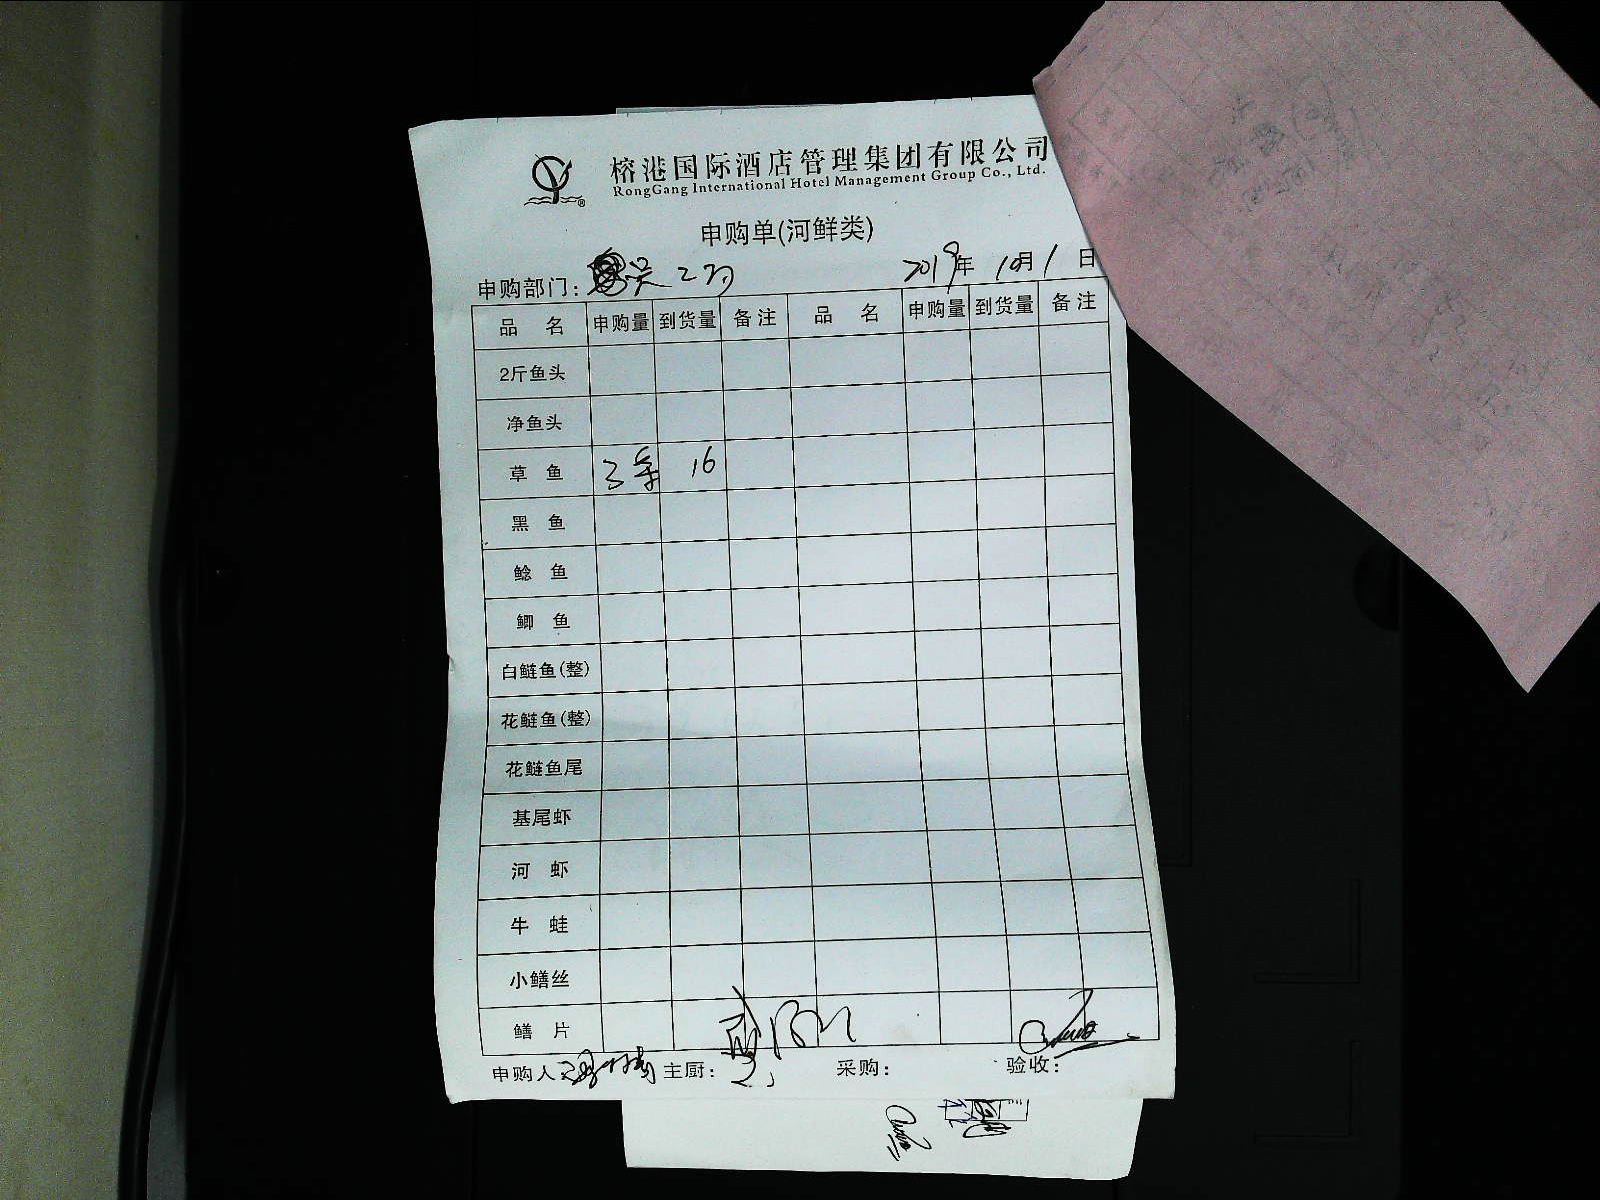 榕港国际酒店管理集团有限公司
RongGang International Hotel Management Group Co., Ltd.
申购单(河鲜类)
申购部门: 2019年 10月 1 日
品 名 申购量 到货量 备注 品 名 申购量 到货量 备注
2斤鱼头
净鱼头
草 鱼 3条 16
黑 鱼
鲶 鱼
鲫 鱼
白鲢鱼(整)
花鲢鱼(整)
花鲢鱼尾
基尾虾
河 虾
牛 蛙
小鳝丝
鳝 片
申购人: 主厨: 采购: 验收: